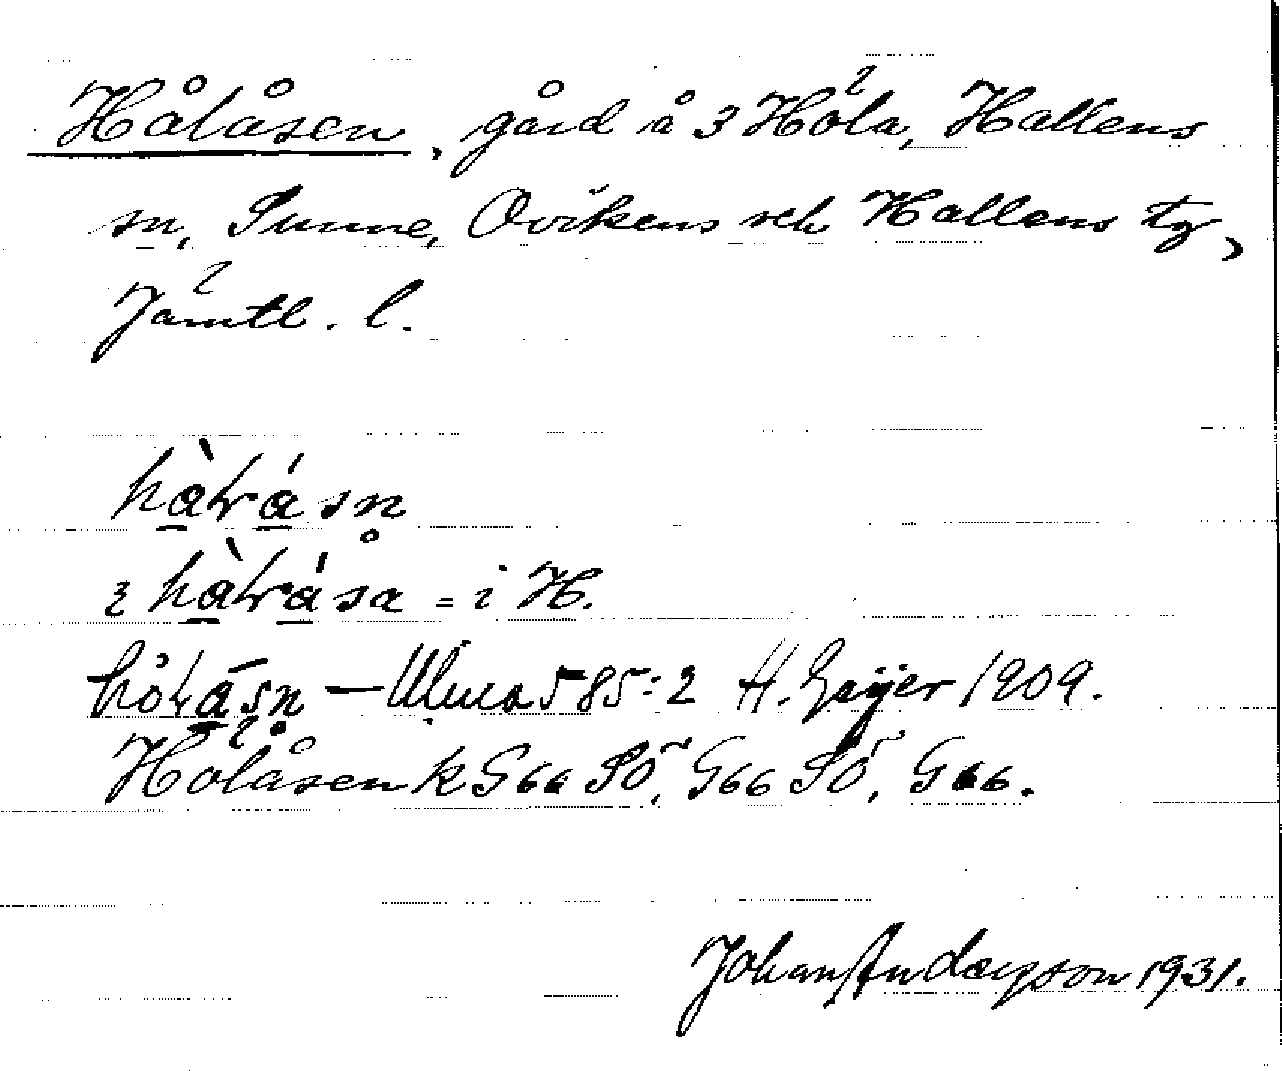 Hålåsen, gård å 3 Höla, Hallens
sn, Sunne, Ovikens och Hallens tg,
Jämtl. l.
hàlrásn̥
i hàlrása = i H.
hölrásn̥ — Ulma 585:2 H. Geijer 1909.
Hölåsen k G66 SÖ, G66 SÖ, G66.
Johan Anderson 1931.